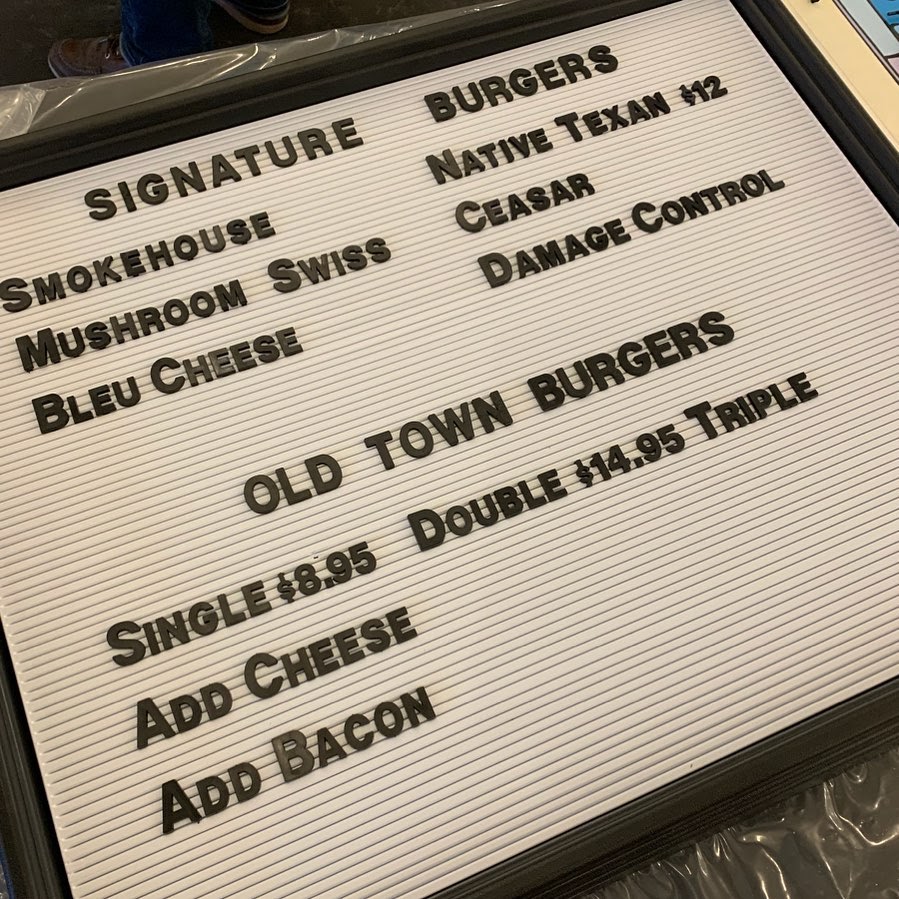 SIGNATURE BURGERS
SMOKEHOUSE NATIVE TEXAN $12
MUSHROOM SWISS CEASAR
BLEU CHEESE DAMAGE CONTROL
OLD TOWN BURGERS
SINGLE $8.95 DOUBLE $14.95 TRIPLE
ADD CHEESE
ADD BACON